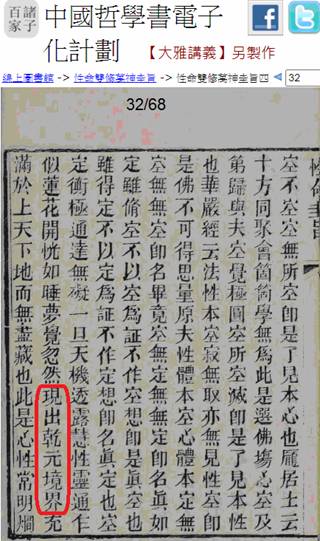 諸子
百家
中國哲學書電子
化計劃 【大雅講義】另製作
線上圖書館 -> 性命雙修萬神圭旨 -> 性命雙修萬神圭旨四 32
32/68
空不空空無所空卽是了見本心也龐居士云
十方同聚會箇箇學無爲此是選佛塲心空及
第歸與夫空覺極圓空所空滅卽是了見本性
也華嚴經云法性本空寂無取亦無見性空卽
是佛不可得思量原夫性體本空心體本無定
空無無空卽名畢竟空無定無無定卽名眞如
定雖脩空不以空爲証不作空想卽是眞空也
雖得定不以定爲証不作定想卽名眞定也空
定衡極通達無礙一旦天機透露慧性靈通乍
似蓮花開恍如睡夢覺忽然現出乾元境界充
滿於上天下地而無盡藏也此是心性常明烱